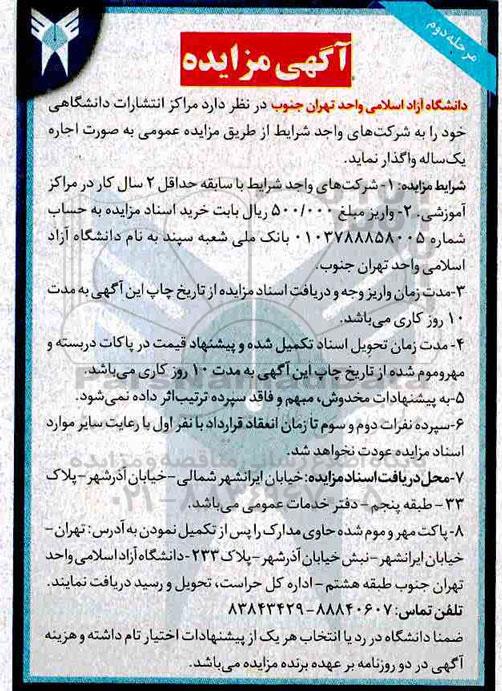 مرحله دوم
آگهی مزایده
دانشگاه آزاد اسلامی واحد تهران جنوب در نظر دارد مراکز انتشارات دانشگاهی
خود را به شرکت‌های واجد شرایط از طریق مزایده عمومی به صورت اجاره
یک‌ساله واگذار نماید.
شرایط مزایده: ۱- شرکت‌های واجد شرایط با سابقه حداقل ۲ سال کار در مراکز
آموزشی. ۲- واریز مبلغ ۵۰۰/۰۰۰ ریال بابت خرید اسناد مزایده به حساب
شماره ۰۱۰۳۷۸۸۸۵۸۰۰۵ بانک ملی شعبه سپند به نام دانشگاه آزاد
اسلامی واحد تهران جنوب.
۳-مدت زمان واریز وجه و دریافت اسناد مزایده از تاریخ چاپ این آگهی به مدت
۱۰ روز کاری می‌باشد.
۴- مدت زمان تحویل اسناد تکمیل شده و پیشنهاد قیمت در پاکات دربسته و
مهروموم شده از تاریخ چاپ این آگهی به مدت ۱۰ روز کاری می‌باشد.
۵-به پیشنهادات مخدوش، مبهم و فاقد سپرده ترتیب‌اثر داده نمی‌شود.
۶-سپرده نفرات دوم و سوم تا زمان انعقاد قرارداد با نفر اول با رعایت سایر موارد
اسناد مزایده عودت نخواهد شد.
۷-محل دریافت اسناد مزایده: خیابان ایرانشهر شمالی-خیابان آذرشهر-پلاک
۳۳ - طبقه پنجم - دفتر خدمات عمومی می‌باشد.
۸- پاکت مهر و موم شده حاوی مدارک را پس از تکمیل نمودن به آدرس: تهران-
خیابان ایرانشهر-نبش خیابان آذرشهر-پلاک ۲۳۳-دانشگاه آزاد اسلامی واحد
تهران جنوب طبقه هشتم - اداره کل حراست، تحویل و رسید دریافت نمایند.
تلفن تماس: ۸۸۸۴۰۶۰۷-۸۳۸۴۳۴۲۹
ضمنا دانشگاه در رد یا انتخاب هر یک از پیشنهادات اختیار تام داشته و هزینه
آگهی در دو روزنامه بر عهده برنده مزایده می‌باشد.